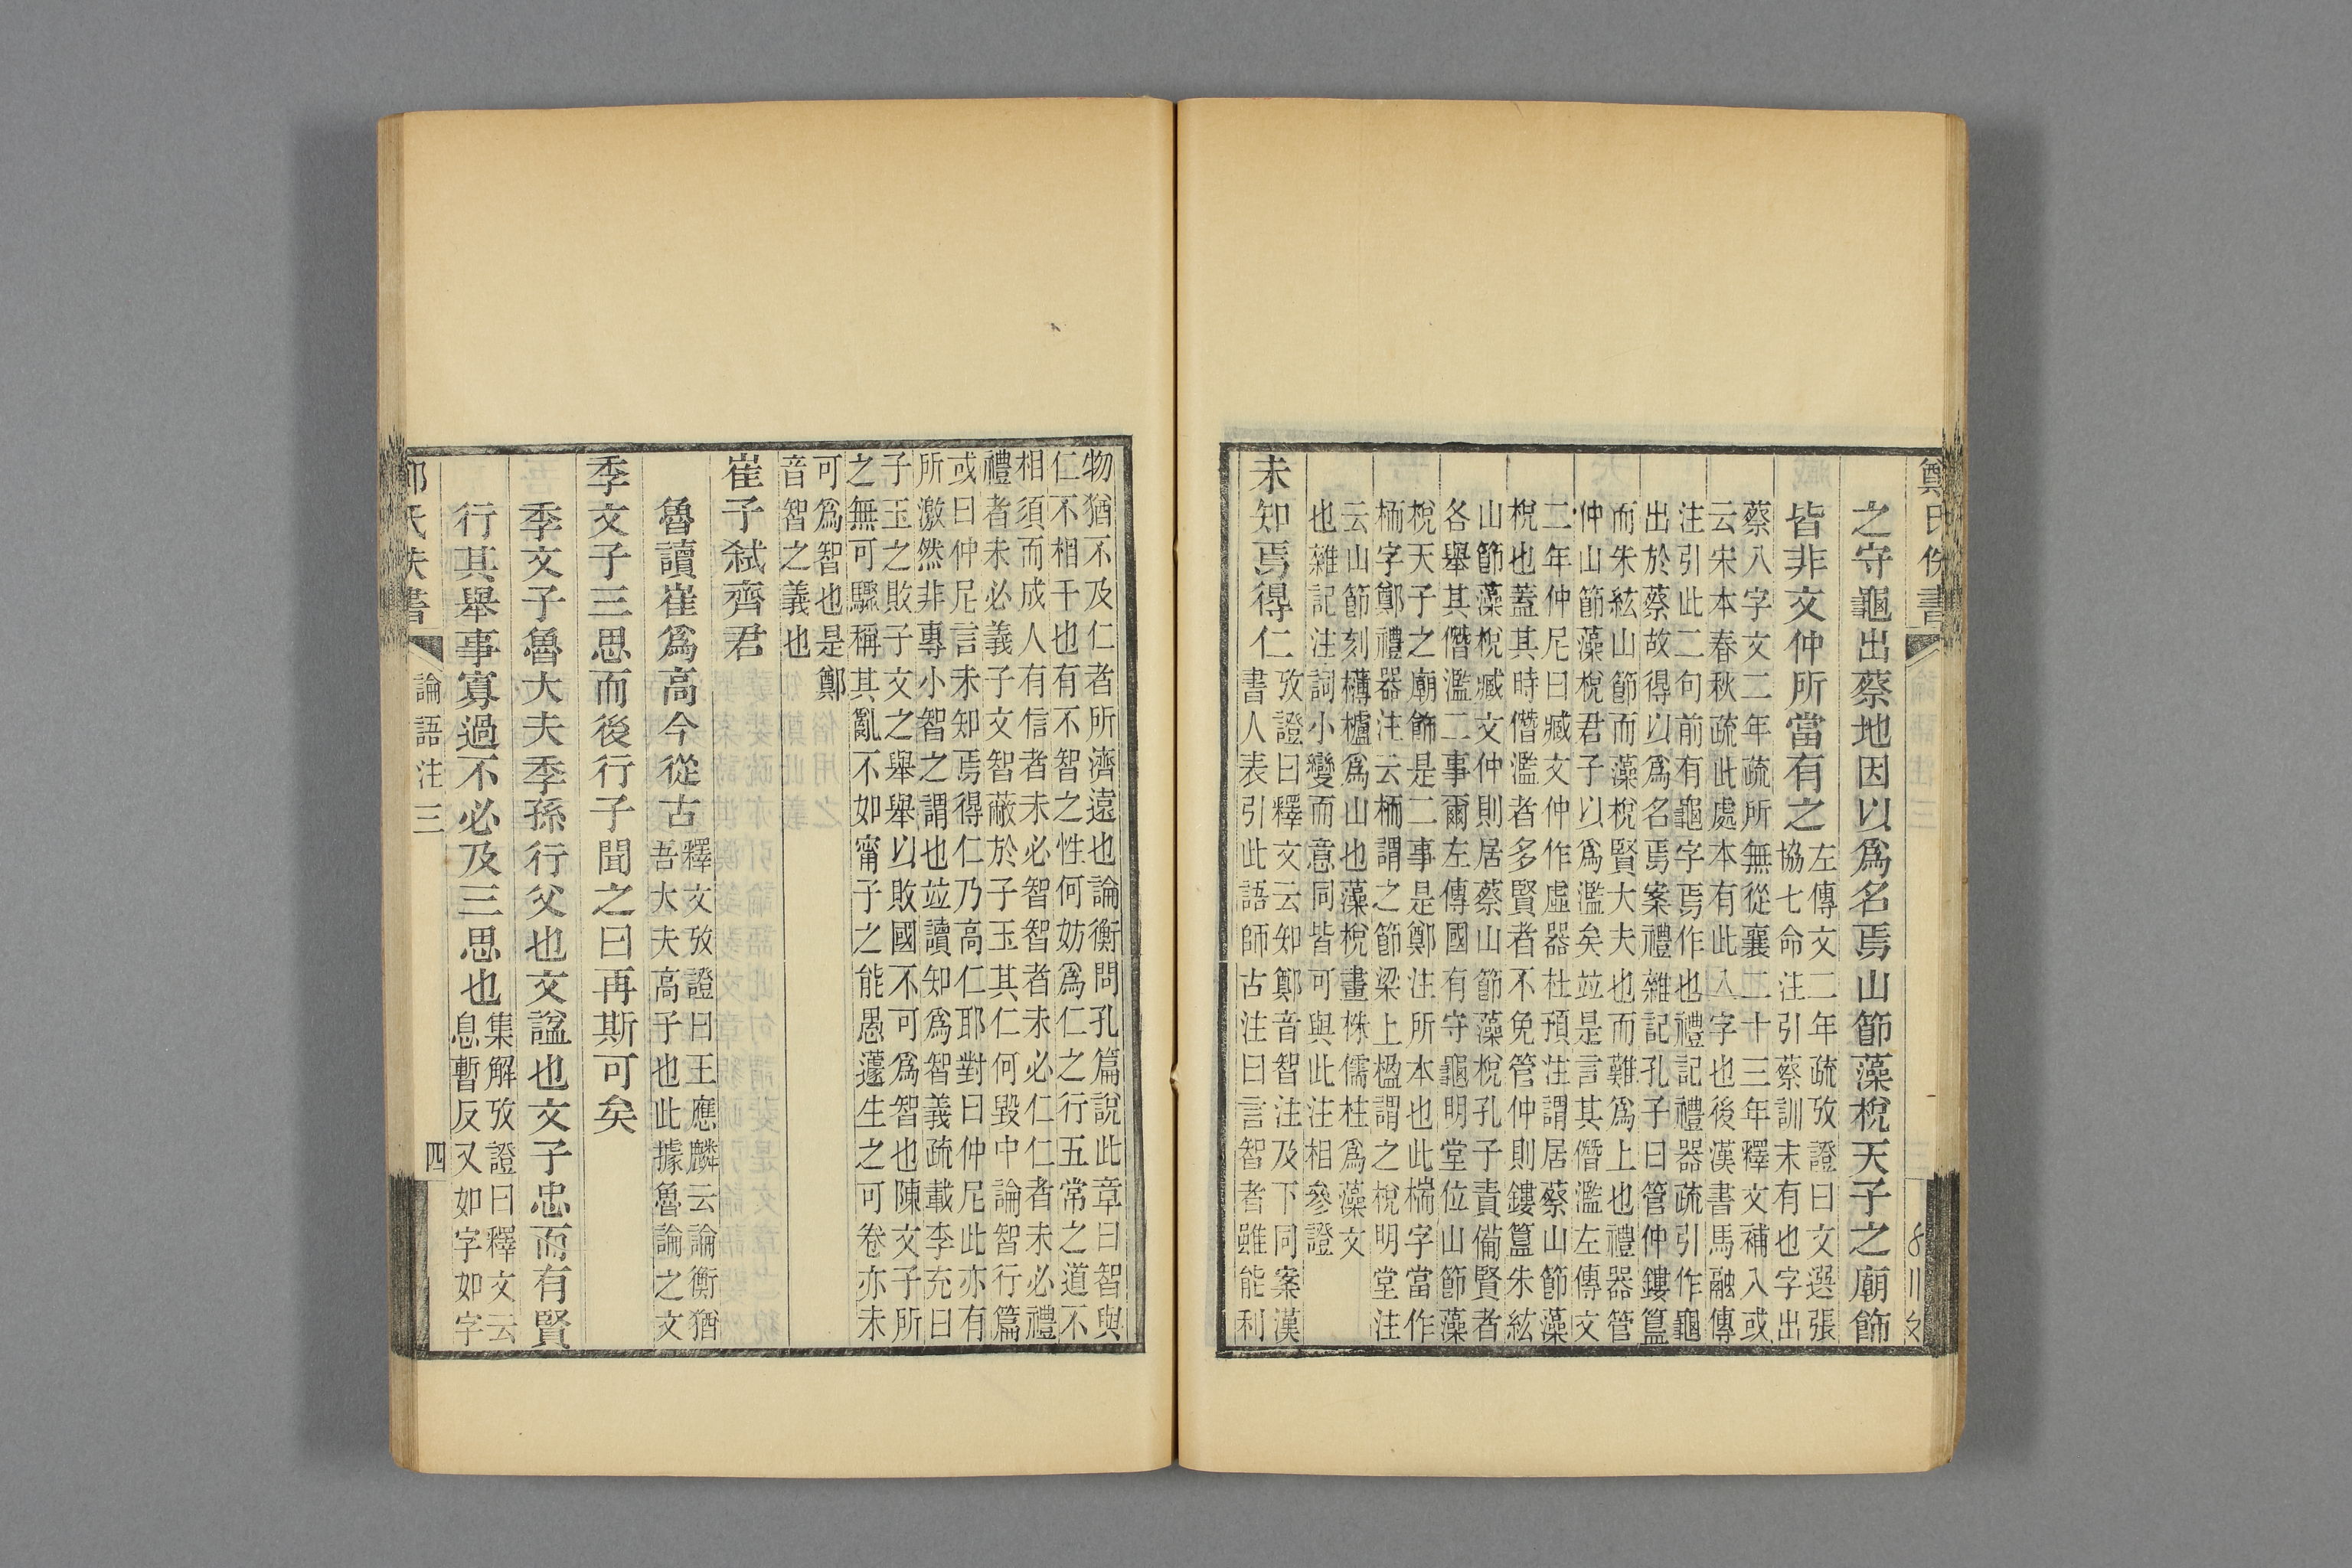 鄭氏佚書
之守龜出蔡地因以爲名焉山節藻梲天子之廟飾
皆非文仲所當有之
左傳文二年疏攷證曰文選張
協七命注引蔡訓末有也字出
蔡八字文二年疏所無從襄二十三年釋文補入或
云宋本春秋疏此處本有此入字也後漢書馬融傳
注引此二句前有龜字焉作也禮記禮器疏引作龜
出於蔡故得以爲名焉案禮雜記孔子曰管仲鏤簋
而朱紘山節而藻梲賢大夫也而難爲上也禮器管
仲山節藻梲君子以爲濫矣竝是言其僭濫左傳文
二年仲尼曰臧文仲作虛器杜預注謂居蔡山節藻
梲也蓋其時僭濫者多賢者不免管仲則鏤簋朱紘
山節藻梲臧文仲則居蔡山節藻梲孔子責備賢者
各舉其僭濫二事爾左傳國有守龜明堂位山節藻
梲天子之廟飾是二事是鄭注所本也此楶字當作
栭字鄭禮器注云栭謂之節梁上楹謂之梲明堂注
云山節刻欂櫨爲山也藻梲畫株儒柱爲藻文
也雜記注詞小變而意同皆可與此注相參證
未知焉得仁
攷證曰釋文云知鄭音智注及下同案漢
書人表引此語師古注曰言智者雖能利
物猶不及仁者所濟遠也論衡問孔篇說此章曰智與
仁不相干也有不智之性何妨爲仁之行五常之道不
相須而成人有信者未必智智者未必仁仁者未必禮
禮者未必義子文智蔽於子玉其仁何毀中論智行篇
或曰仲尼言未知焉得仁乃高仁耶對曰仲尼此亦有
所激然非專小智之謂也竝讀知爲智義疏載李充曰
子玉之敗子文之舉舉以敗國不可爲智也陳文子所
之無可驟稱其亂不如甯子之能愚蘧生之可卷亦未
可爲智也是鄭
音智之義也
崔子弑齊君
魯讀崔爲高今從古
釋文攷證曰王應麟云論衡猶
吾大夫高子也此據魯論之文
季文子三思而後行子聞之曰再斯可矣
季文子魯大夫季孫行父也文諡也文子忠而有賢
行其舉事寡過不必及三思也
集解攷證曰釋文云
息暫反又如字如字
氏佚書
論語注三
四